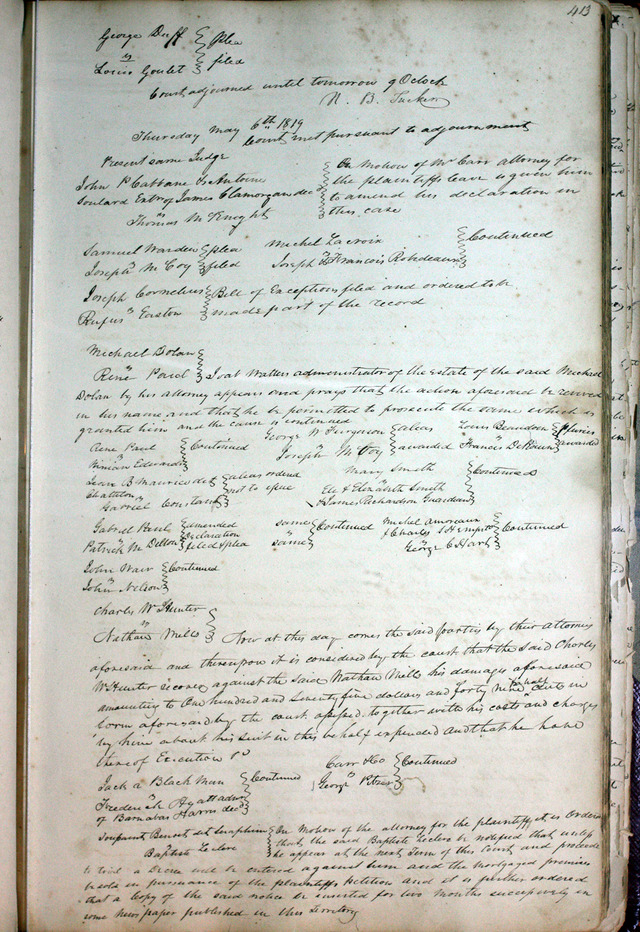 413
George Duff } plea
vs
Louis Goulet } filed
Court adjourned until tomorrow 9 OClock
N. B. Tucker
Thursday May 6th 1819
Court met pursuant to adjournment
Present same Judge
John P Cabbane & Antoine } On Motion of Mr Carr attorney for
Soulard Extrs of James Clamorgan decd } the plaintiffs leave is given him
vs } to amend his declaration in
Thomas McKnight } this case
Samuel Warden } plea Michel Lacroix } Continued
vs
Joseph McCoy } filed Joseph & Francois Robedeaux
Joseph Cornelius } Bill of Exceptions filed and ordered to be
vs
Rufus Easton } made part of the record
Michael Dolan
vs
Rene Paul } Joab Waters administrator of the estate of the said Michael
Dolan by his attorney appears and prays that the action aforesaid be revived
in his name and that he be permitted to prosecute the same which is
granted him and the cause is continued
Rene Paul } Continued George W Ferguson } alias Louis Beaudoin } pluries
vs
Ninian Edwards Joseph McCoy } awarded Francis awarded
Jean B Maurice dit } alias ordered Mary Smith } Continued
Chattelon } not to issue vs
Gabriel Constant Eli & Elizabeth Smith
& James Richardson Guardian
Gabriel Paul } amended same } Continued Michel Amoreaux } Continued
vs declaration vs & Charles S Hempstead
Patrick M Dillon } filed & plea same George C Hart
John Waer } Continued
vs
John Nelson
Charles W Hunter
vs
Nathan Mills } Now at this day comes the said parties by their attornies
aforesaid and thereupon it is considered by the court that the said Charles
W Hunter recover against the said Nathan Mills his damages aforesaid
amounting to One hundred and Seventy five dollars and forty nine & half cents in
form aforesaid by the court assessed, together with his costs and charges
by him about his suit in this behalf expended and that he have
thereof Execution &c
Carr & Co } Continued
Jack a Black Man } Continued George
vs
Frederick Hyatt admr
of Barnabas Harris decd
Benoit dit Seraphim } On Motion of the attorney for the plaintiff, it is Ordered
vs that, the said Baptiste Leclerc be notified that unless
Baptiste Leclerc } he appear at the next Term of this Court, and proceede
to trial a Decree will be entered against him and the Mortgaged premises
be sold in pursuance of the plaintiffs Petition and it is further ordered
that a Copy of the said notice be inserted for two Months successively in
some News paper published in this Territory